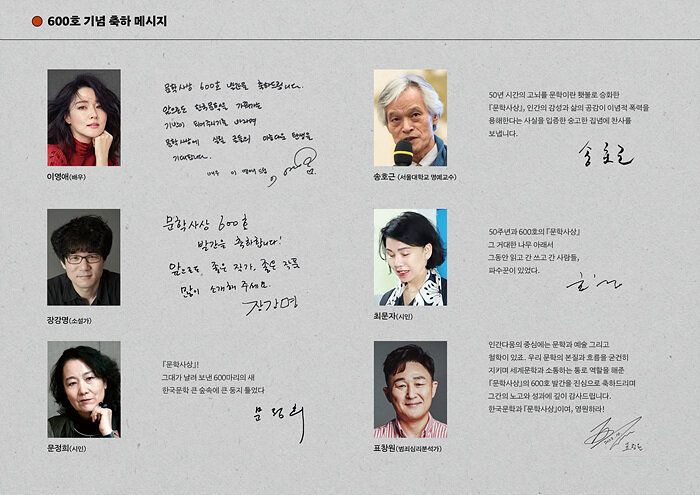 600호 기념 축하 메시지
문학사상 600호 발간을 축하드립니다.
앞으로도 한국문학을 가꾸어가는
기념비가 되어주시기를 바라며
기대합니다.
배우 이영애 드림
이영애(배우)
50년 시간의 고뇌를 문학이란 횃불로 승화한
『문학사상』, 인간의 감성과 삶의 공감이 이념적 폭력을
용해한다는 사실을 입증한 숭고한 집념에 찬사를
보냅니다.
송호근
송호근 (서울대학교 명예교수)
문학사상 600호
발간을 축하합니다!
앞으로도, 좋은 작가, 좋은 작품
많이 소개해 주세요.
장강명
장강명(소설가)
50주년과 600호의 『문학사상』
그 거대한 나무 아래서
그동안 읽고 간 쓰고 간 사람들,
파수꾼이 있었다.
최문자(시인)
『문학사상』!
그대가 날려 보낸 600마리의 새
한국문학 큰 숲속에 큰 둥지 틀었다
문정희
문정희(시인)
인간다움의 중심에는 문학과 예술 그리고
철학이 있죠. 우리 문학의 본질과 흐름을 굳건히
지키며 세계문학과 소통하는 통로 역할을 해준
『문학사상』의 600호 발간을 진심으로 축하드리며
그간의 노고와 성과에 깊이 감사드립니다.
한국문학과 『문학사상』이여, 영원하라!
표창원
표창원(범죄심리분석가)